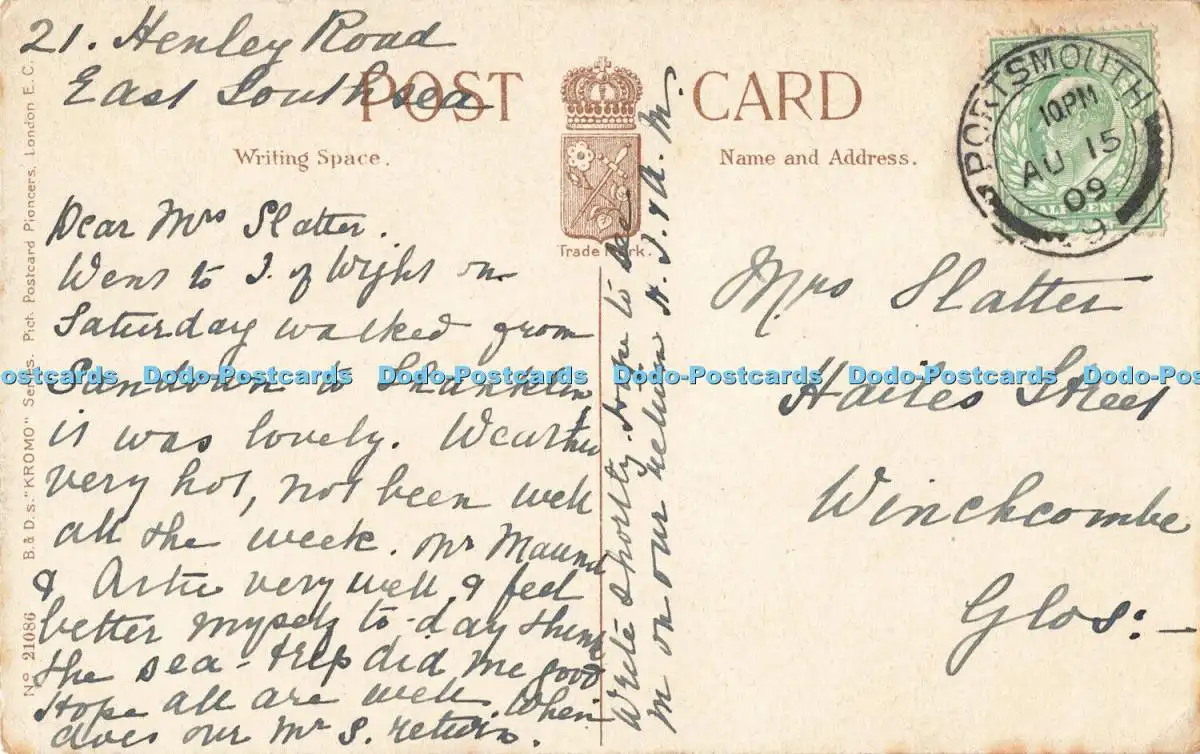 21. Henley Road
East Southsea
POST CARD
Writing Space.
Name and Address.
Trade Mark.
PORTSMOUTH
10.PM
AU 15
09
Dear Mrs Slatter.
Went to I. of Wight on
Saturday walked from
Sandown to Shanklin
it was lovely. Weather
very hot, not been well
all the week. Mr Maund
& Artie very well & feel
better myself to-day think
the sea-trip did me good
Hope all are well. When
does our Mr S. return.
Write shortly. Hope to see
m on our return A. J. & A. M.
Mrs Slatter
Hailes Street
Winchcombe
Glos:—
No 21086 B. & D.s. "KROMO" Series. Pict. Postcard Pioneers, London E.C.
Dodo-Postcards Dodo-Postcards Dodo-Postcards Dodo-Postcards Dodo-Postcards